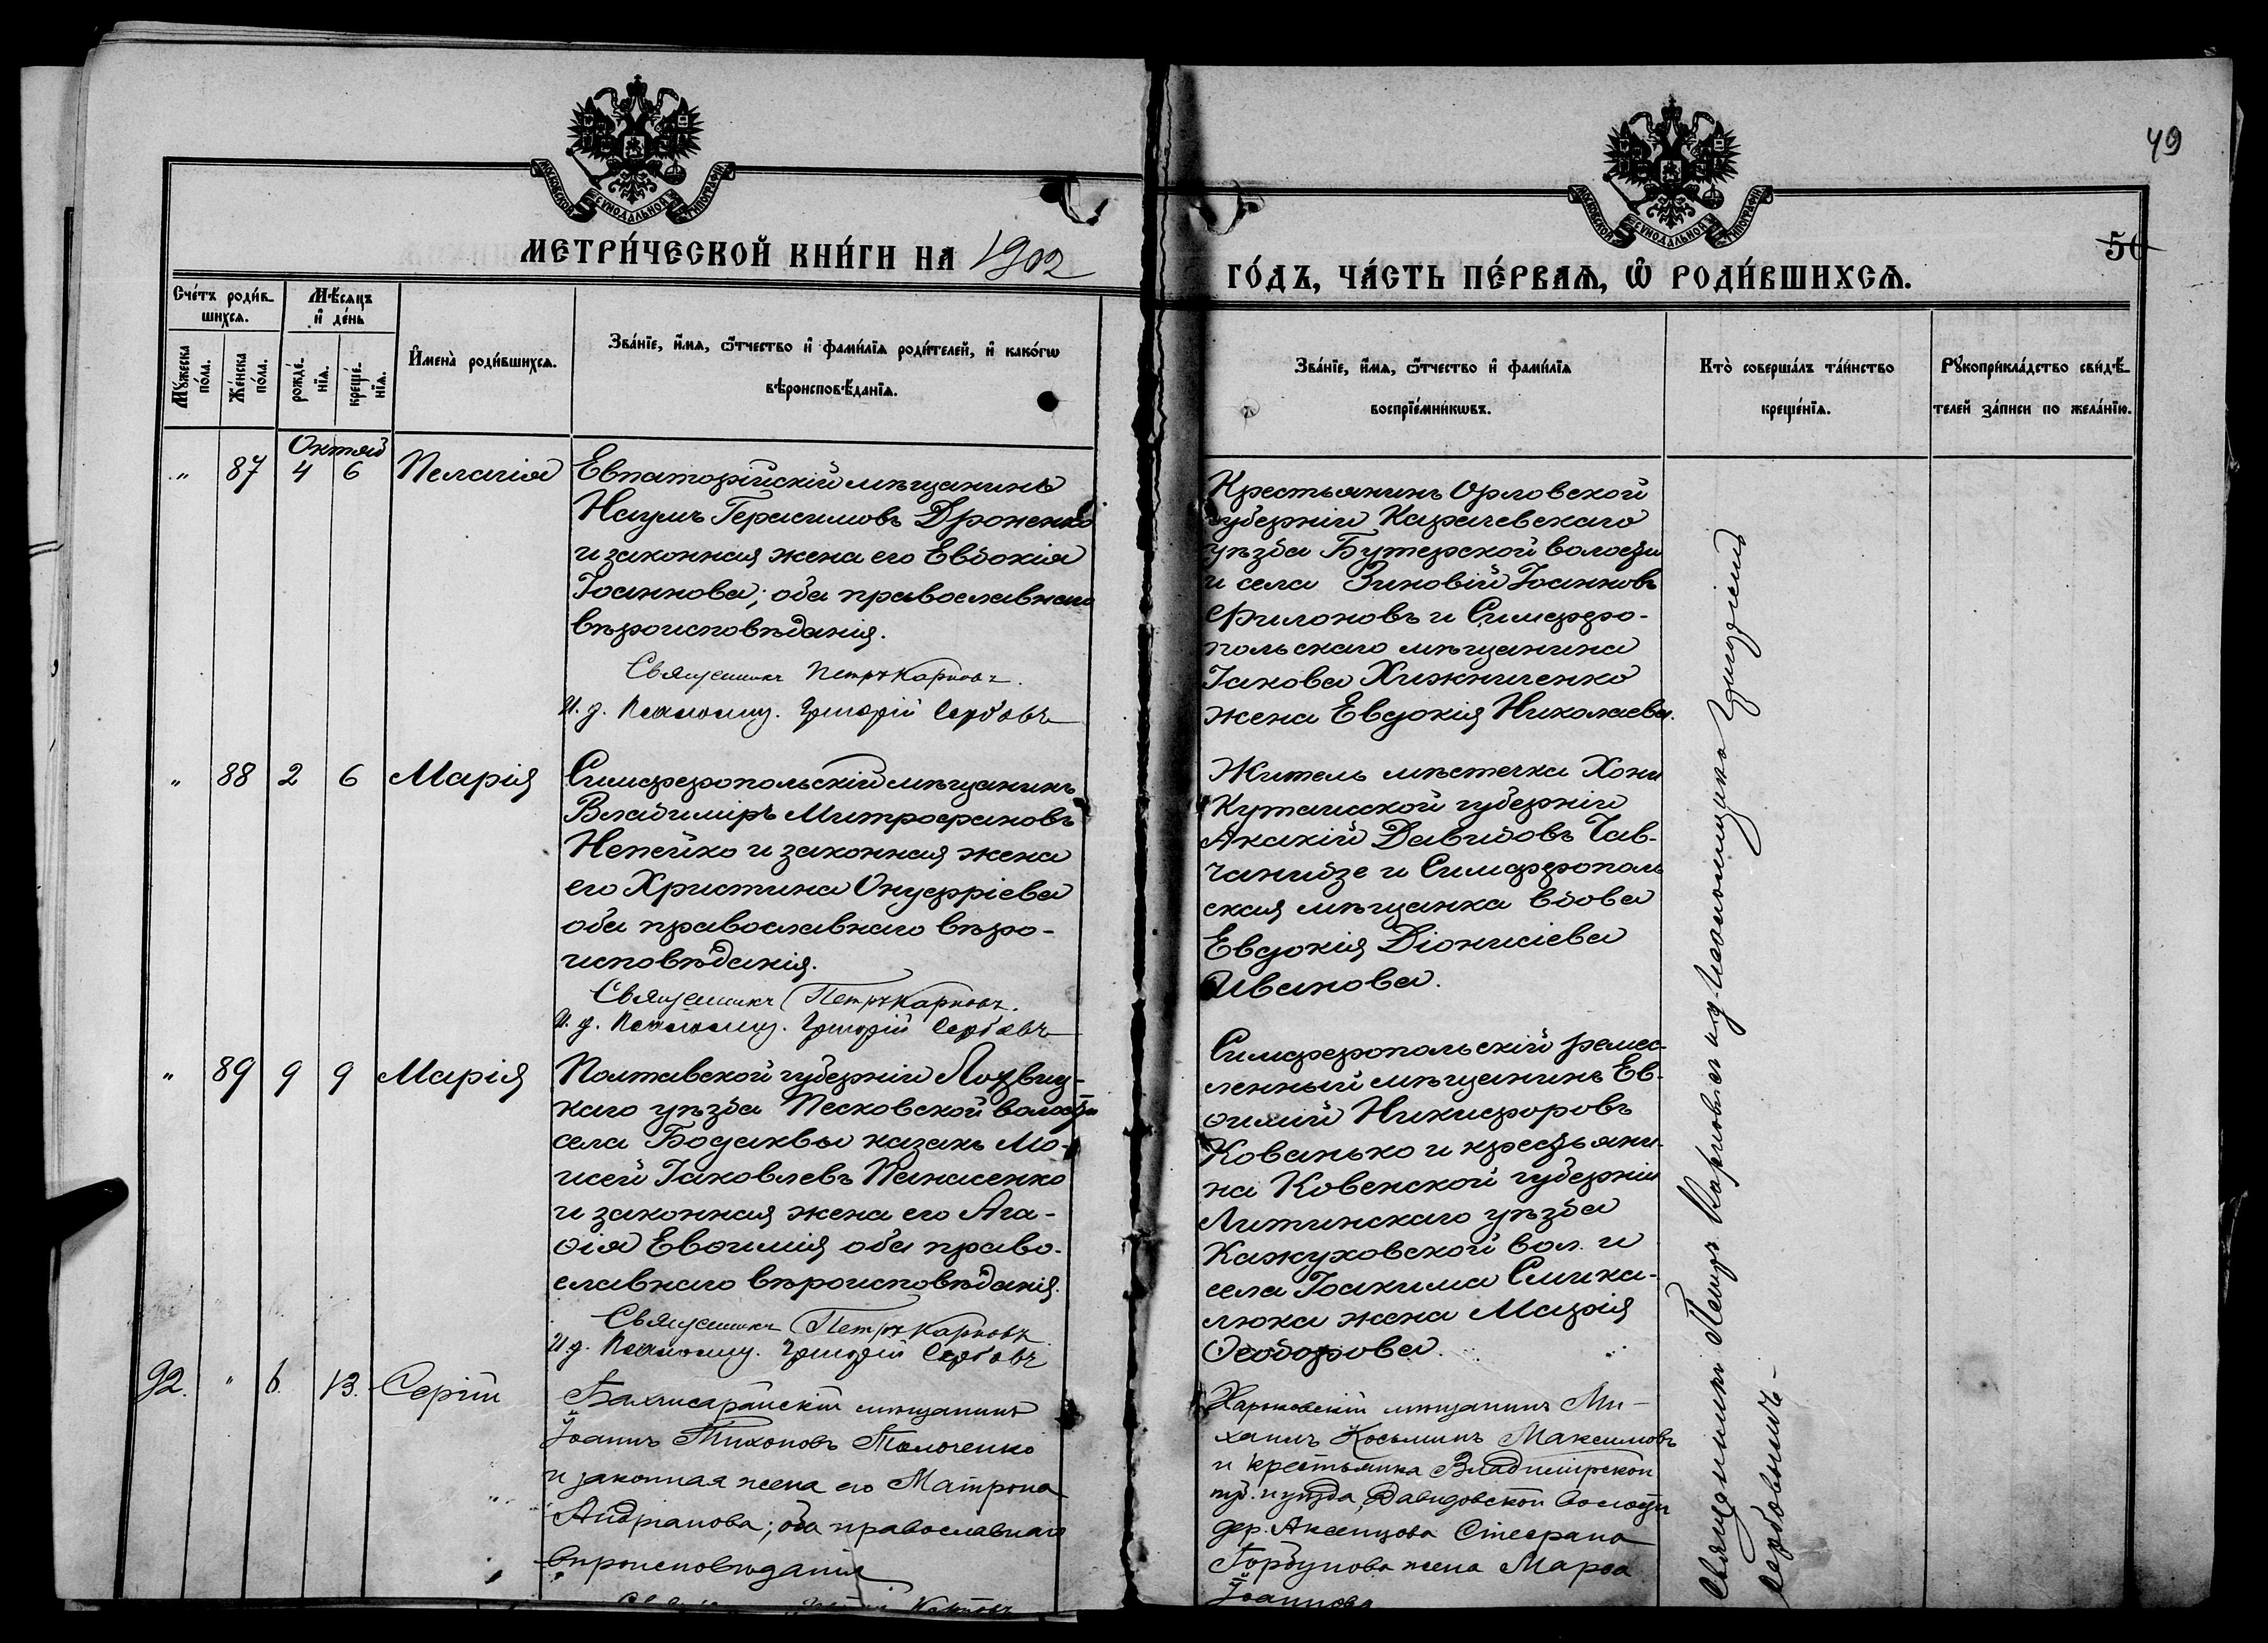 49
50
МОСКОВСКОЙ СѴНОДАЛЬНОЙ ТИПОГРАФІИ
МОСКОВСКОЙ СѴНОДАЛЬНОЙ ТИПОГРАФІИ
МЕТРИ́ЧЕСКОЙ КНИ́ГИ НА 1902
ГО́ДЪ, ЧА́СТЬ ПЕ́РВАѦ, Ѿ РОДИ́ВШИХСѦ.
Сче́тъ роди́в-
шихсѧ.
Мꙋжеска по́ла.
Же́нска по́ла.
Мѣ́сѧцъ
и҆ де́нь
рожде́-
нїѧ.
креще́-
нїѧ.
И҆мена̀ роди́вшихсѧ.
Зва́нїе, и҆́мѧ, ѻ҆́тчество и҆ фами́лїѧ роди́телей, и҆ како́гѡ
вѣроисповѣ́данїѧ.
Зва́нїе, и҆́мѧ, ѻ҆́тчество и҆ фами́лїѧ
воспрїе́мникѡвъ.
Кто̀ соверша́лъ та́инство
креще́нїѧ.
Рꙋкоприкла́дство свидѣ́-
телей за́писи по жела́нїю.
Октяб
" 87 4 6 Пелагія
Евпаторійскій мѣщанинъ
Наумъ Герасимовъ Дроненко
и законная жена его Евдокія
Іоаннова; оба православнаго
вѣроисповѣданія.
Священникъ Петръ Карповъ.
И. д. Псаломщ. Григорій Сербовъ
Крестьянинъ Орловской
губерніи Карачевскаго
уѣзда Бутерской волости
и села Зиновій Іоанновъ
Филоновъ и Симферо-
польскаго мѣщанина
Іакова Хижниченко
жена Евдокія Николаева.
" 88 2 6 Марія
Симферопольскій мѣщанинъ
Владиміръ Митрофановъ
Непейко и законная жена
его Христина Онуфріева
оба православнаго вѣро-
исповѣданія.
Священникъ Петръ Карповъ.
И. д. Псаломщ. Григорій Сербовъ
Житель мѣстечка Хони
Кутаисской губерніи
Акакій Давидовъ Чав-
чанидзе и Симферополь
ская мѣщанка вдова
Евдокія Діонисіева
Иванова.
" 89 9 9 Марія
Полтавской губерніи Лохвиц-
каго уѣзда Песковской волости
села Бодаквы казакъ Мо-
исей Іаковлевъ Панасенко
и законная жена его Ага-
ѳія Евѳимія оба право-
славнаго вѣроисповѣданія.
Священникъ Петръ Карповъ
И. д. Псаломщ. Григорій Сербовъ
Симферопольскій ремес-
ленный мѣщанинъ Ев-
ѳимій Никифоровъ
Кованько и крестьяни-
на Ковенской губерніи
Литинскаго уѣзда
Кажуховской вол. и
села Іоакима Слика-
люка жена Марія
Ѳеодорова.
92. " 6. 13. Сергій
Бахчисарайскій мѣщанинъ
Іоаннъ Тихоновъ Толоченко
и законная жена его Матрона
Андріанова; оба православнаго
вѣроисповѣданія
Харьковскій мѣщанинъ Ми-
хаилъ Косьминъ Максимовъ
и крестьянка Владимірской
губ. и уѣзда, Давидовской волости
дер. Аксенцова Стефана
Горбунова жена Марѳа
Іоаннова
Священникъ Петръ Карповъ и и. д. псаломщика Григорій
Сербовымъ.-